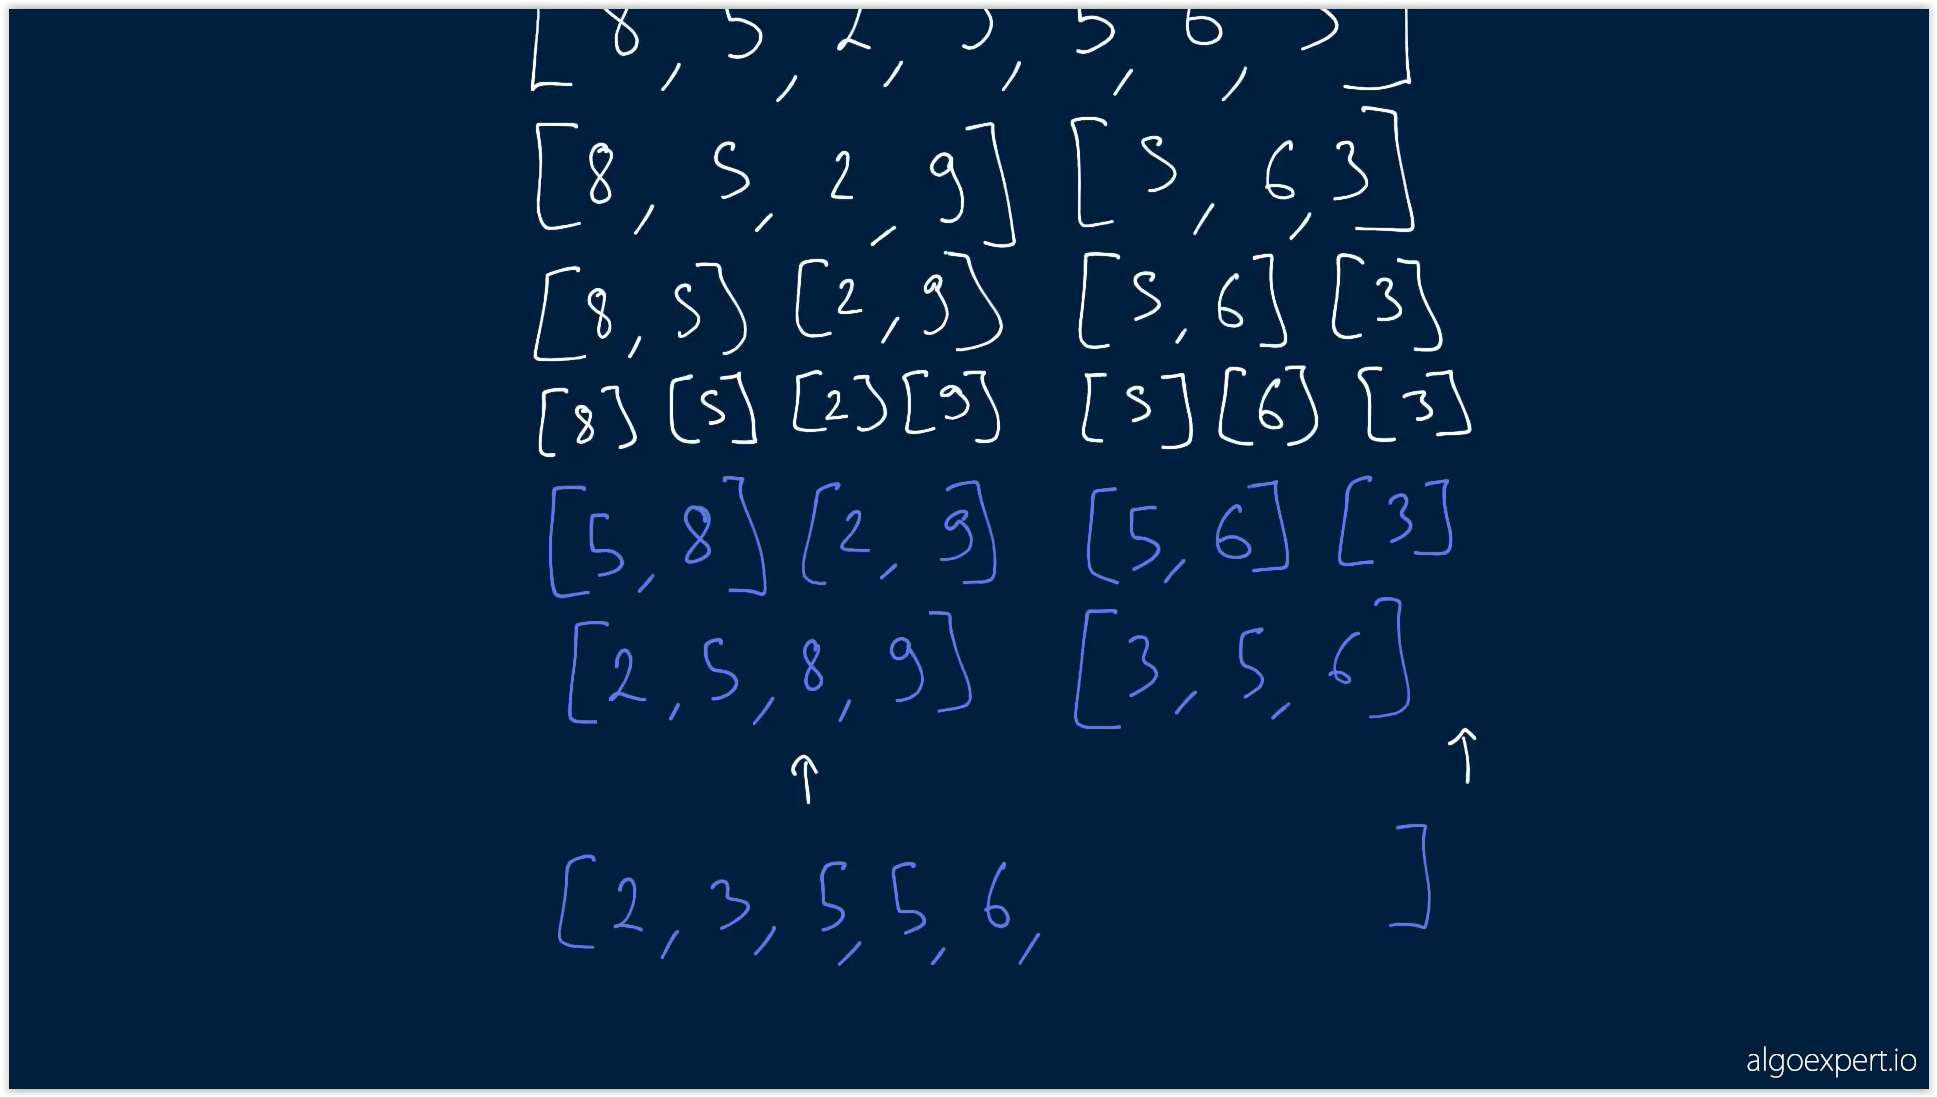 [8, 5, 2, 9, 5, 6, 3]
[8, 5, 2, 9] [5, 6, 3]
[8, 5] [2, 9] [5, 6] [3]
[8] [5] [2] [9] [5] [6] [3]
[5, 8] [2, 9] [5, 6] [3]
[2, 5, 8, 9] [3, 5, 6]
↑ ↑
[2, 3, 5, 5, 6, ]
algoexpert.io